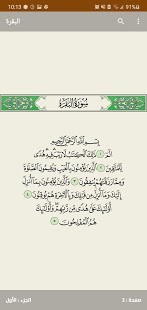 10:13
91%
البقرة
سورة البقرة
بسم الله الرحمن الرحيم
الم ١ ذلك الكتب لا ريب فيه هدى
للمتقين ٢ الذين يؤمنون بالغيب ويقيمون الصلوة
ومما رزقنهم ينفقون ٣ والذين يؤمنون بما أنزل
إليك وما أنزل من قبلك وبالأخرة هم يوقنون ٤
أولئك على هدى من ربهم وأولئك
هم المفلحون ٥
صفحة : 3
الجزء الأول